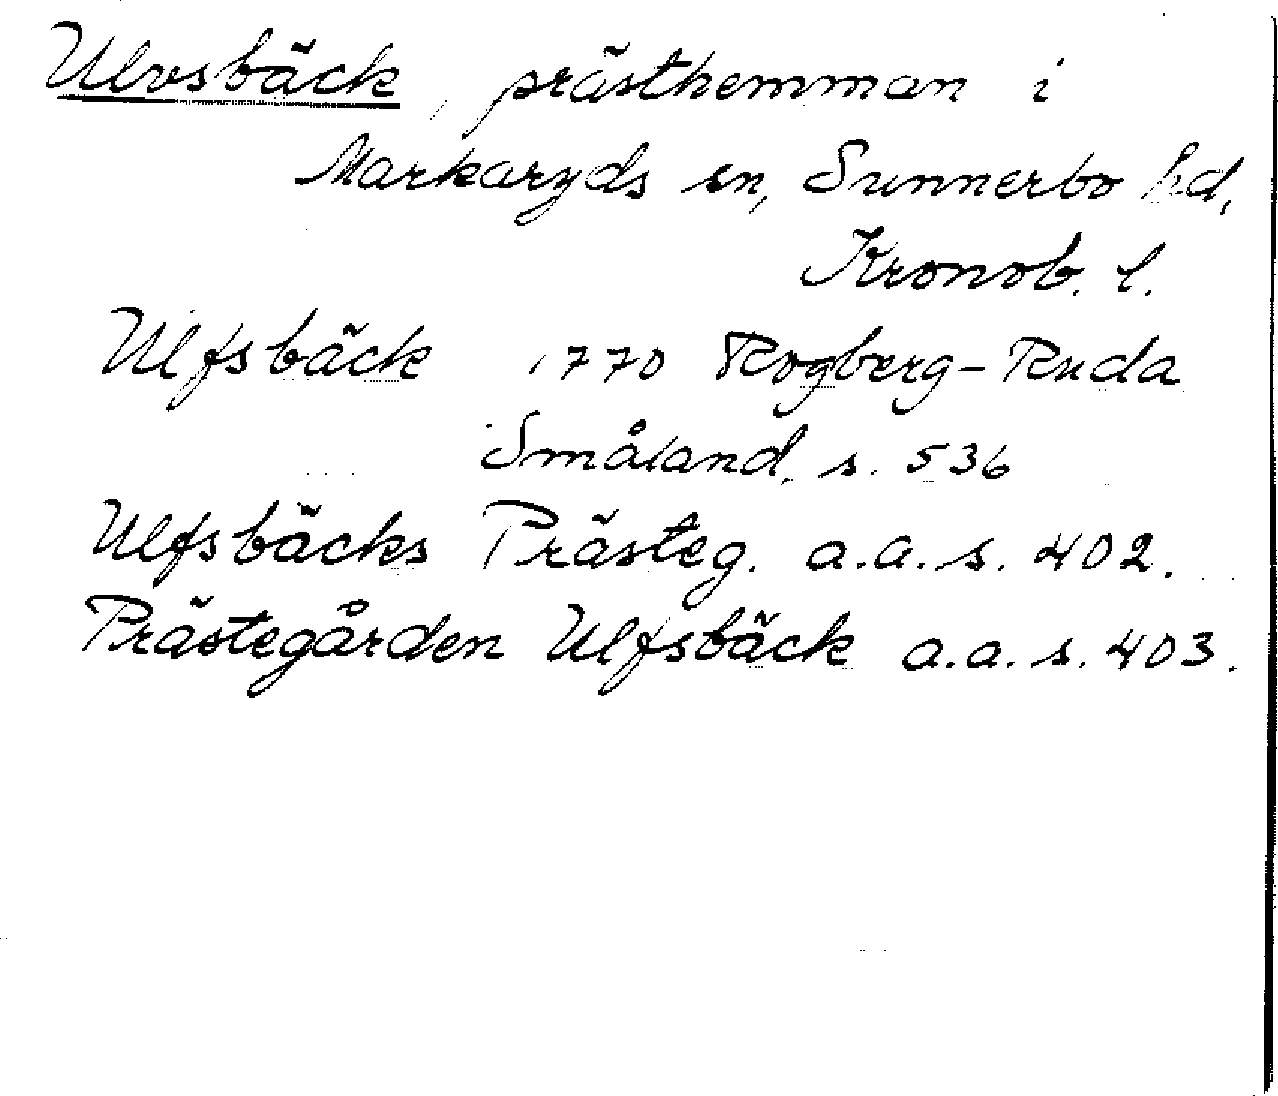 Ulvsbäck, prästhemman i
Markaryds sn, Sunnerbo hd,
Kronob. l.
Ulfsbäck 1770 Rogberg-Ruda
Småland, s. 536
Ulfsbäcks Prästeg. a.a. s. 402.
Prästegården Ulfsbäck a.a. s. 403.